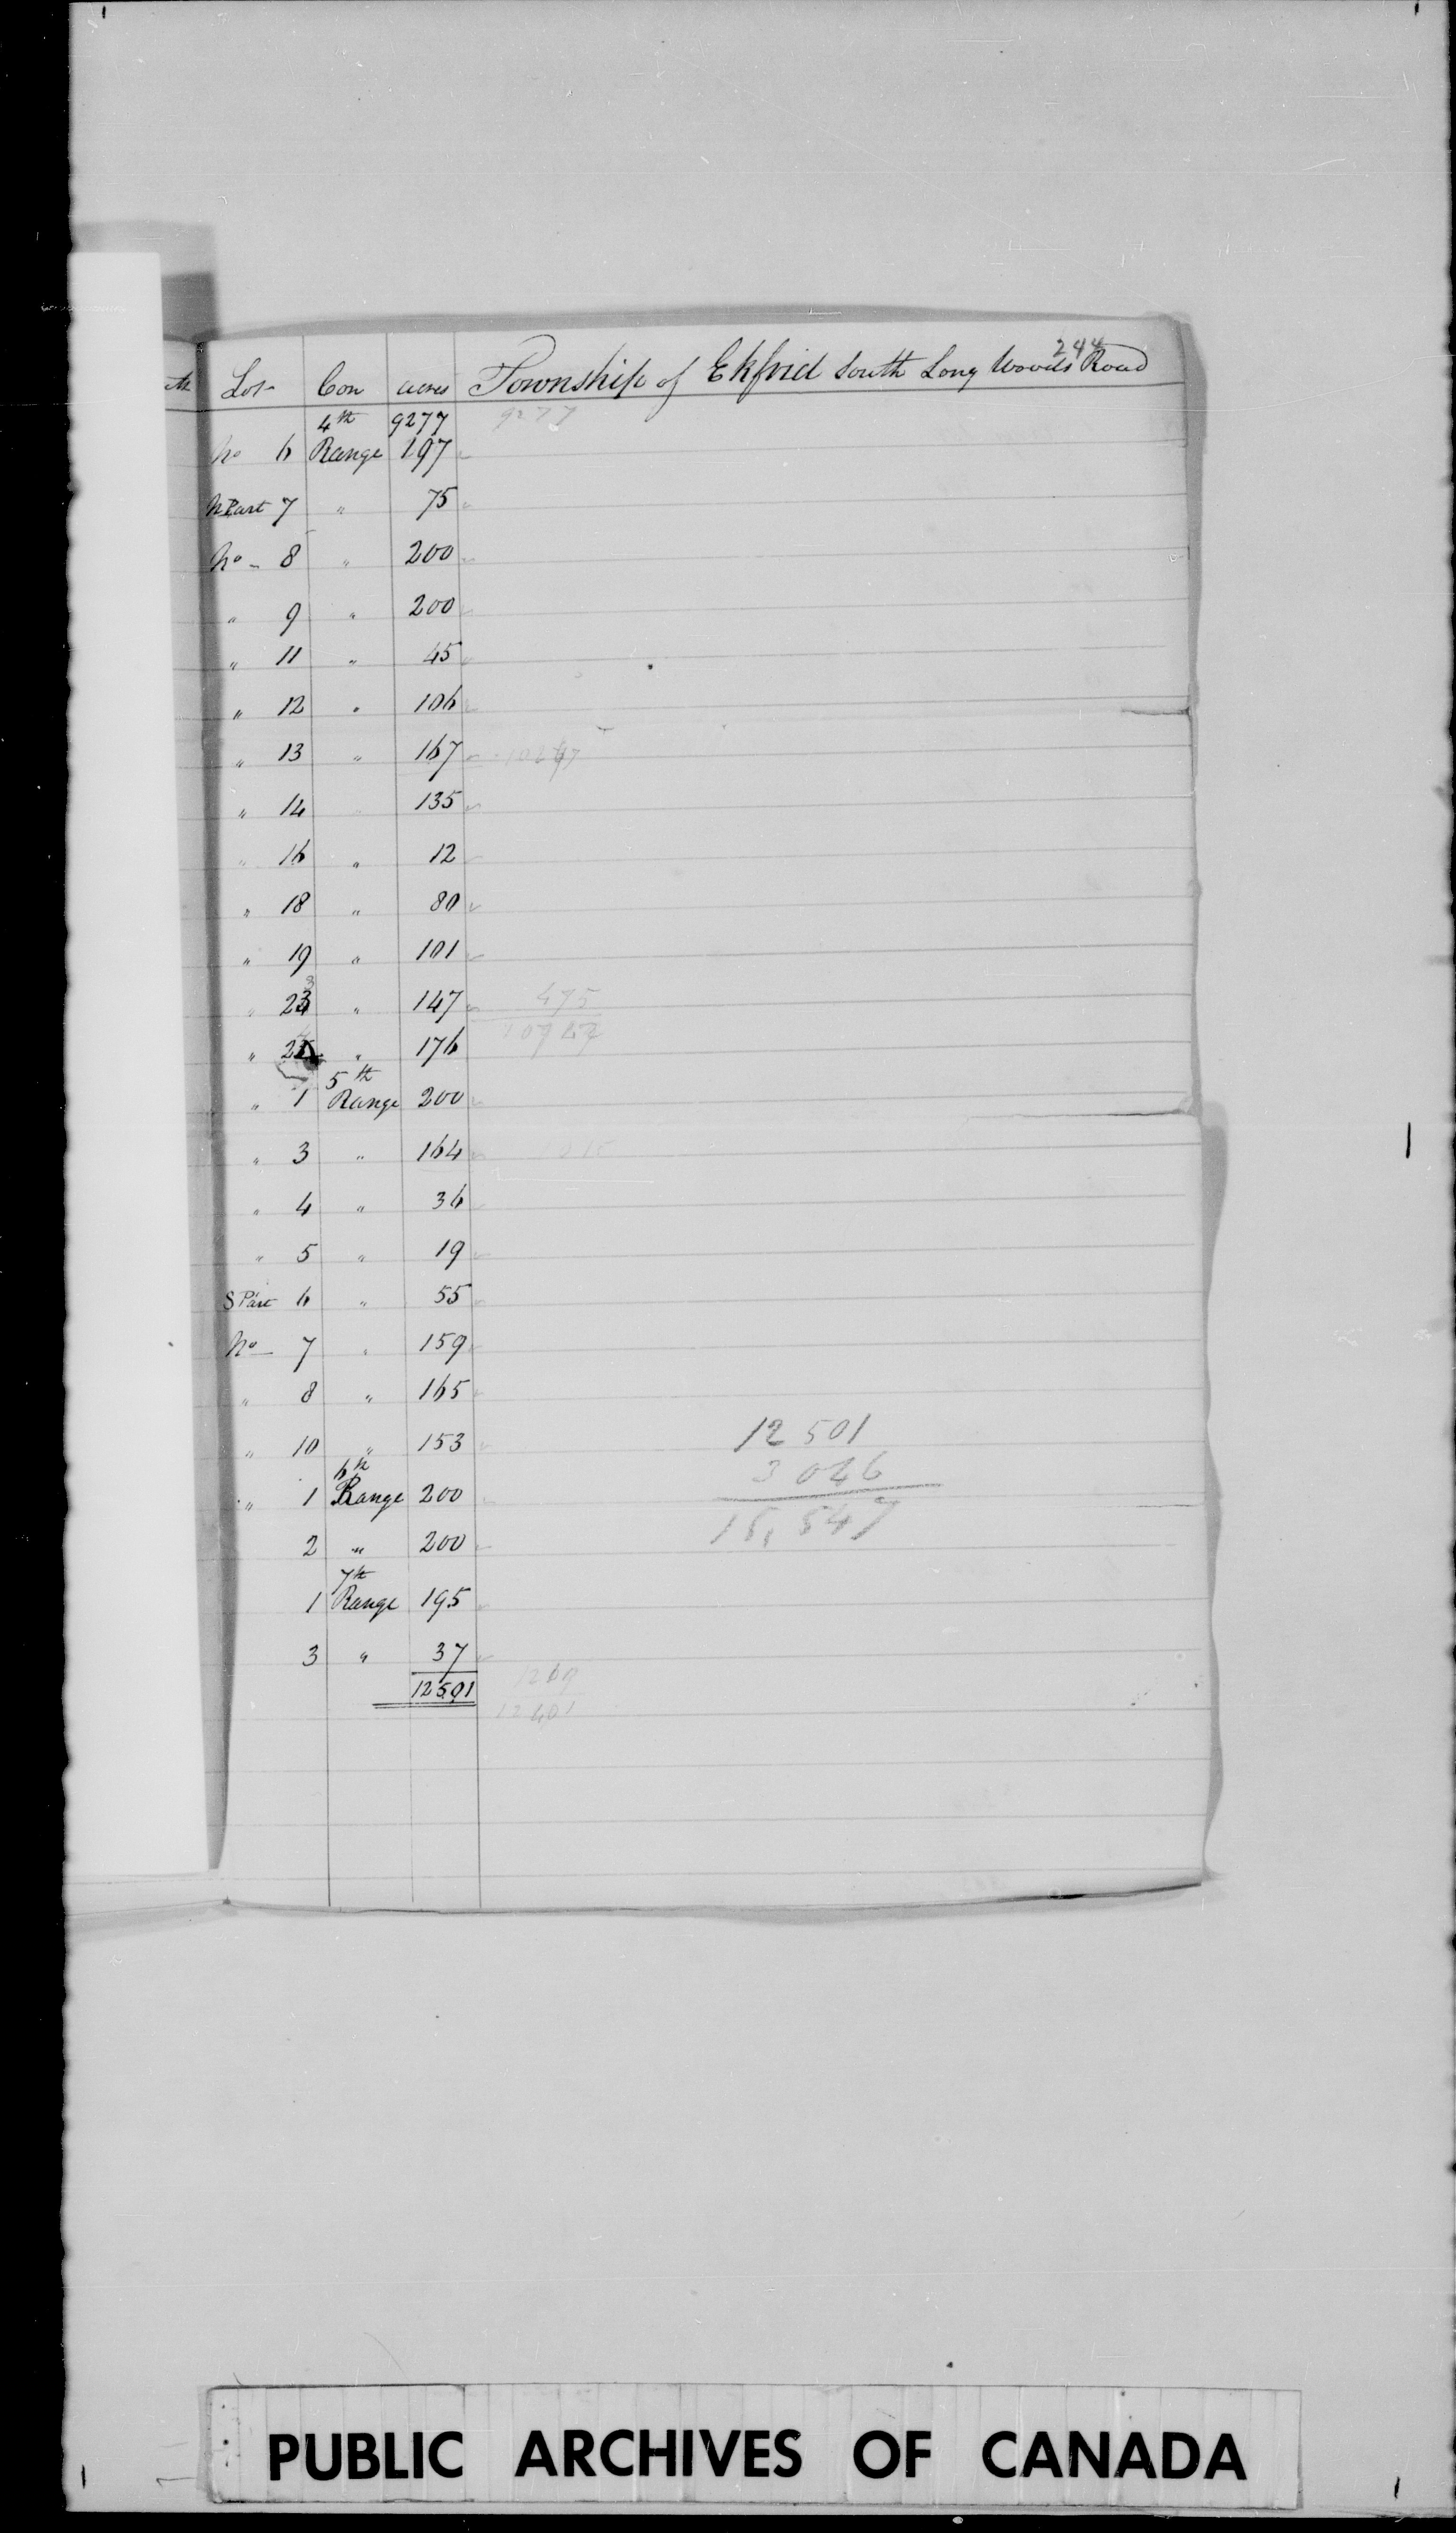 244
Lot Con acres Township of Ekfrid South Long Woods Road
4th 9277 9277
No 6 Range 197
N Part 7 " 75
No - 8 " 200
" 9 " 200
" 11 " 45
" 12 " 106
" 13 " 167
" 14 135
" 16 " 12
" 18 " 80
" 19 " 101
" 23 " 147 475
" " 176
5th
" 1 Range 200
" 3 " 164
" 4 " 36
" 5 " 19
S Part 6 " 55
No - 7 " 159
" 8 " 165
12 501
" 10 " 153
3 046
6th
" 1 Range 200
15,547
2 " 200
7th
1 Range 195
3 " 37
12501
PUBLIC ARCHIVES OF CANADA